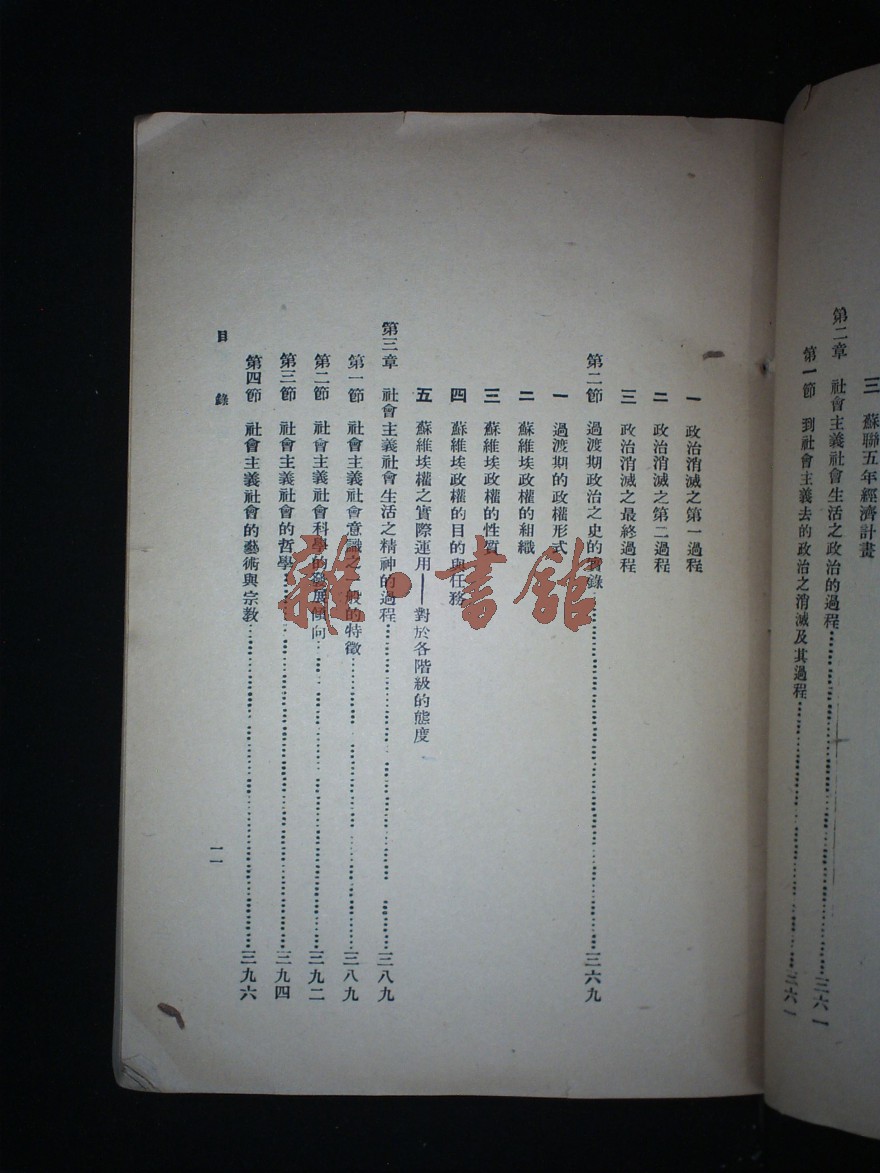 三 蘇聯五年經濟計畫
第二章 社會主義社會生活之政治的過程……三六一
第一節 到社會主義去的政治之消滅及其過程……三六一
一 政治消滅之第一過程
二 政治消滅之第二過程
三 政治消滅之最終過程
第二節 過渡期政治之史的實錄……三六九
一 過渡期的政權形式
二 蘇維埃政權的組織
三 蘇維埃政權的性質
四 蘇維埃政權的目的與任務
五 蘇維埃政權之實際運用——對於各階級的態度
第三章 社會主義社會生活之精神的過程……三八九
第一節 社會主義社會意識之一般的特徵……三八九
第二節 社會主義社會科學的發展傾向……三九二
第三節 社會主義社會的哲學……三九四
第四節 社會主義社會的藝術與宗教……三九六
目錄
一一
雜·書館